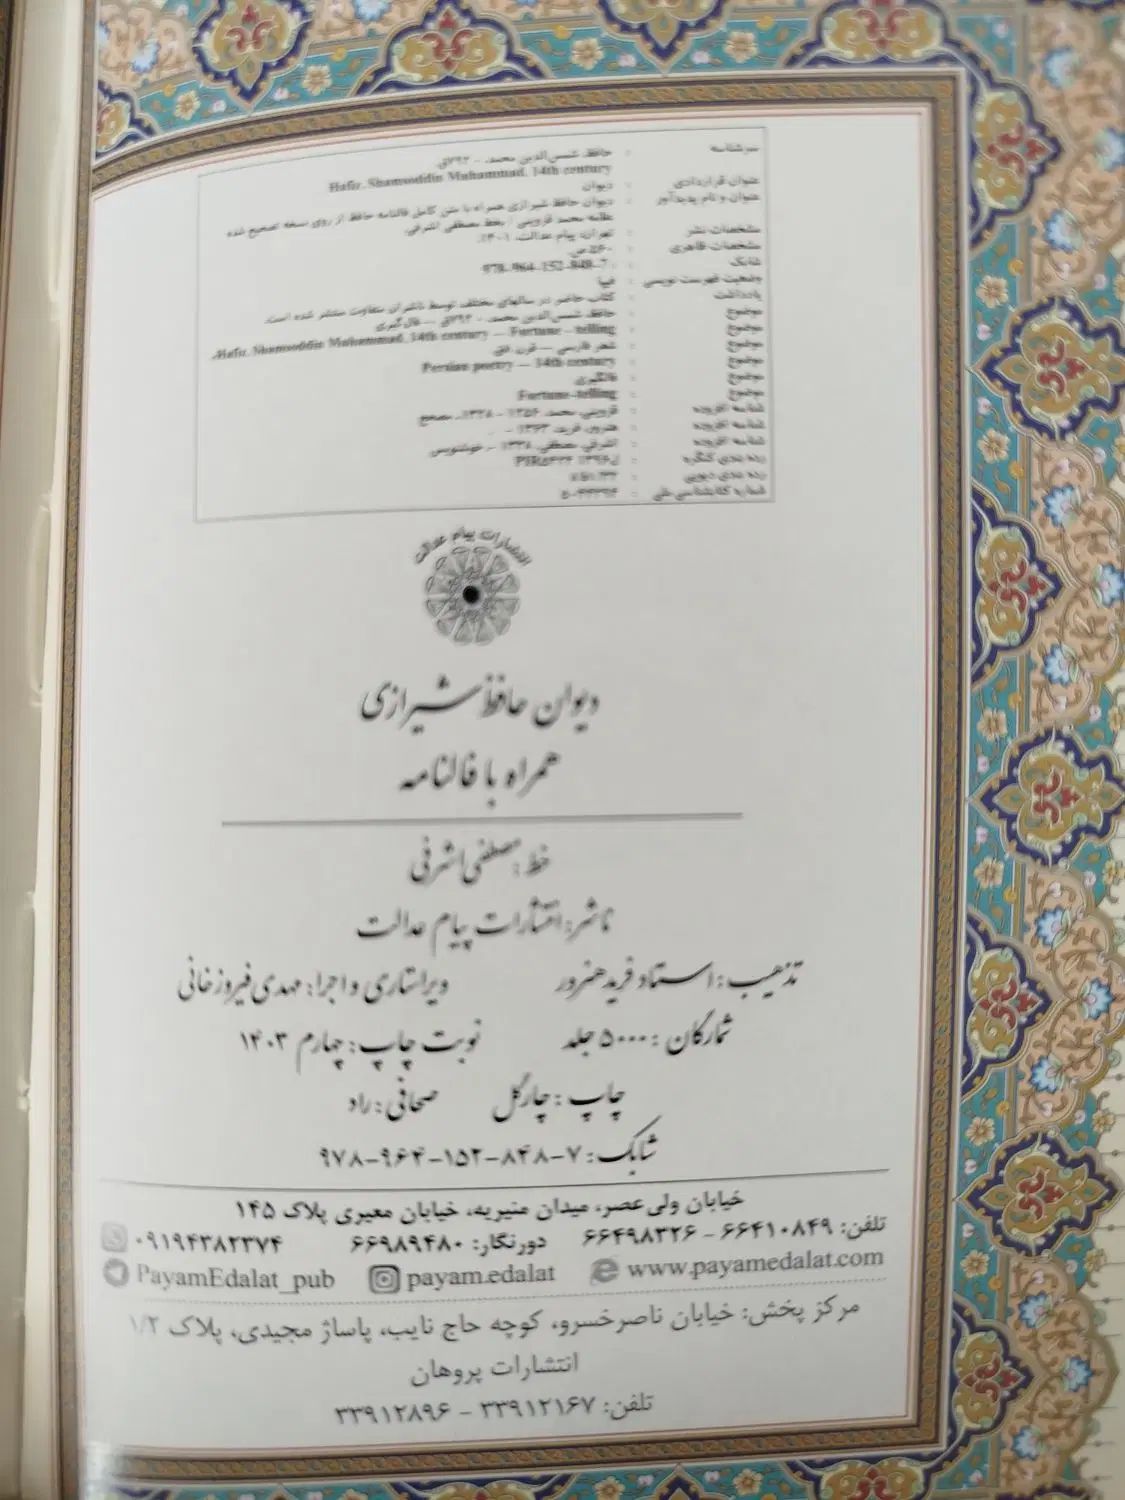 سرشناسه : حافظ، شمس‌الدین محمد، - ۷۹۲ق.
Hafiz, Shamsoddin Muhammad, 14th century
عنوان قراردادی : دیوان
عنوان و نام پدیدآور : دیوان حافظ شیرازی همراه با متن کامل فالنامه حافظ از روی نسخه تصحیح شده
علامه محمد قزوینی / بخط مصطفی اشرفی.
مشخصات نشر : تهران: پیام عدالت، ۱۴۰۱.
مشخصات ظاهری : ۵۶۰ص
شابک : 978-964-152-848-7
وضعیت فهرست نویسی : فیپا
یادداشت : کتاب حاضر در سالهای مختلف توسط ناشران متفاوت منتشر شده است.
موضوع : حافظ، شمس‌الدین محمد، - ۷۹۲ق -- فال‌گیری
موضوع : Hafiz, Shamsoddin Muhammad, 14th century -- Fortune - telling
موضوع : شعر فارسی -- قرن ۸ق
موضوع : Persian poetry -- 14th century
موضوع : فالگیری
موضوع : Fortune-telling
شناسه افزوده : قزوینی، محمد، ۱۲۵۶ - ۱۳۲۸، مصحح
شناسه افزوده : هنرور، فرید، ۱۳۶۳ -
شناسه افزوده : اشرفی، مصطفی، ۱۳۳۸ -، خوشنویس
رده بندی کنگره :
رده بندی دیویی :
شماره کتابشناسی ملی :
انتشارات پیام عدالت
دیوان حافظ شیرازی
همراه با فالنامه
خط: مصطفی اشرفی
ناشر: انتشارات پیام عدالت
تذهیب: استاد فرید هنرور ویراستاری و اجرا: مهدی فیروزخانی
شمارگان: ۵۰۰۰ جلد نوبت چاپ: چهارم ۱۴۰۳
چاپ: چارگل صحافی: راد
شابک: ۷-۸۴۸-۱۵۲-۹۶۴-۹۷۸
خیابان ولی عصر، میدان منیریه، خیابان معیری پلاک ۱۴۵
تلفن: ۶۶۴۱۰۸۴۹ - ۶۶۴۹۸۳۲۶ دورنگار: ۶۶۹۸۹۴۸۰ ۰۹۱۹۴۳۸۲۳۷۴
www.payamedalat.com payam.edalat PayamEdalat_pub
مرکز پخش: خیابان ناصرخسرو، کوچه حاج نایب، پاساژ مجیدی، پلاک ۱/۲
انتشارات پروهان
تلفن: ۳۳۹۱۲۱۶۷ - ۳۳۹۱۲۸۹۶